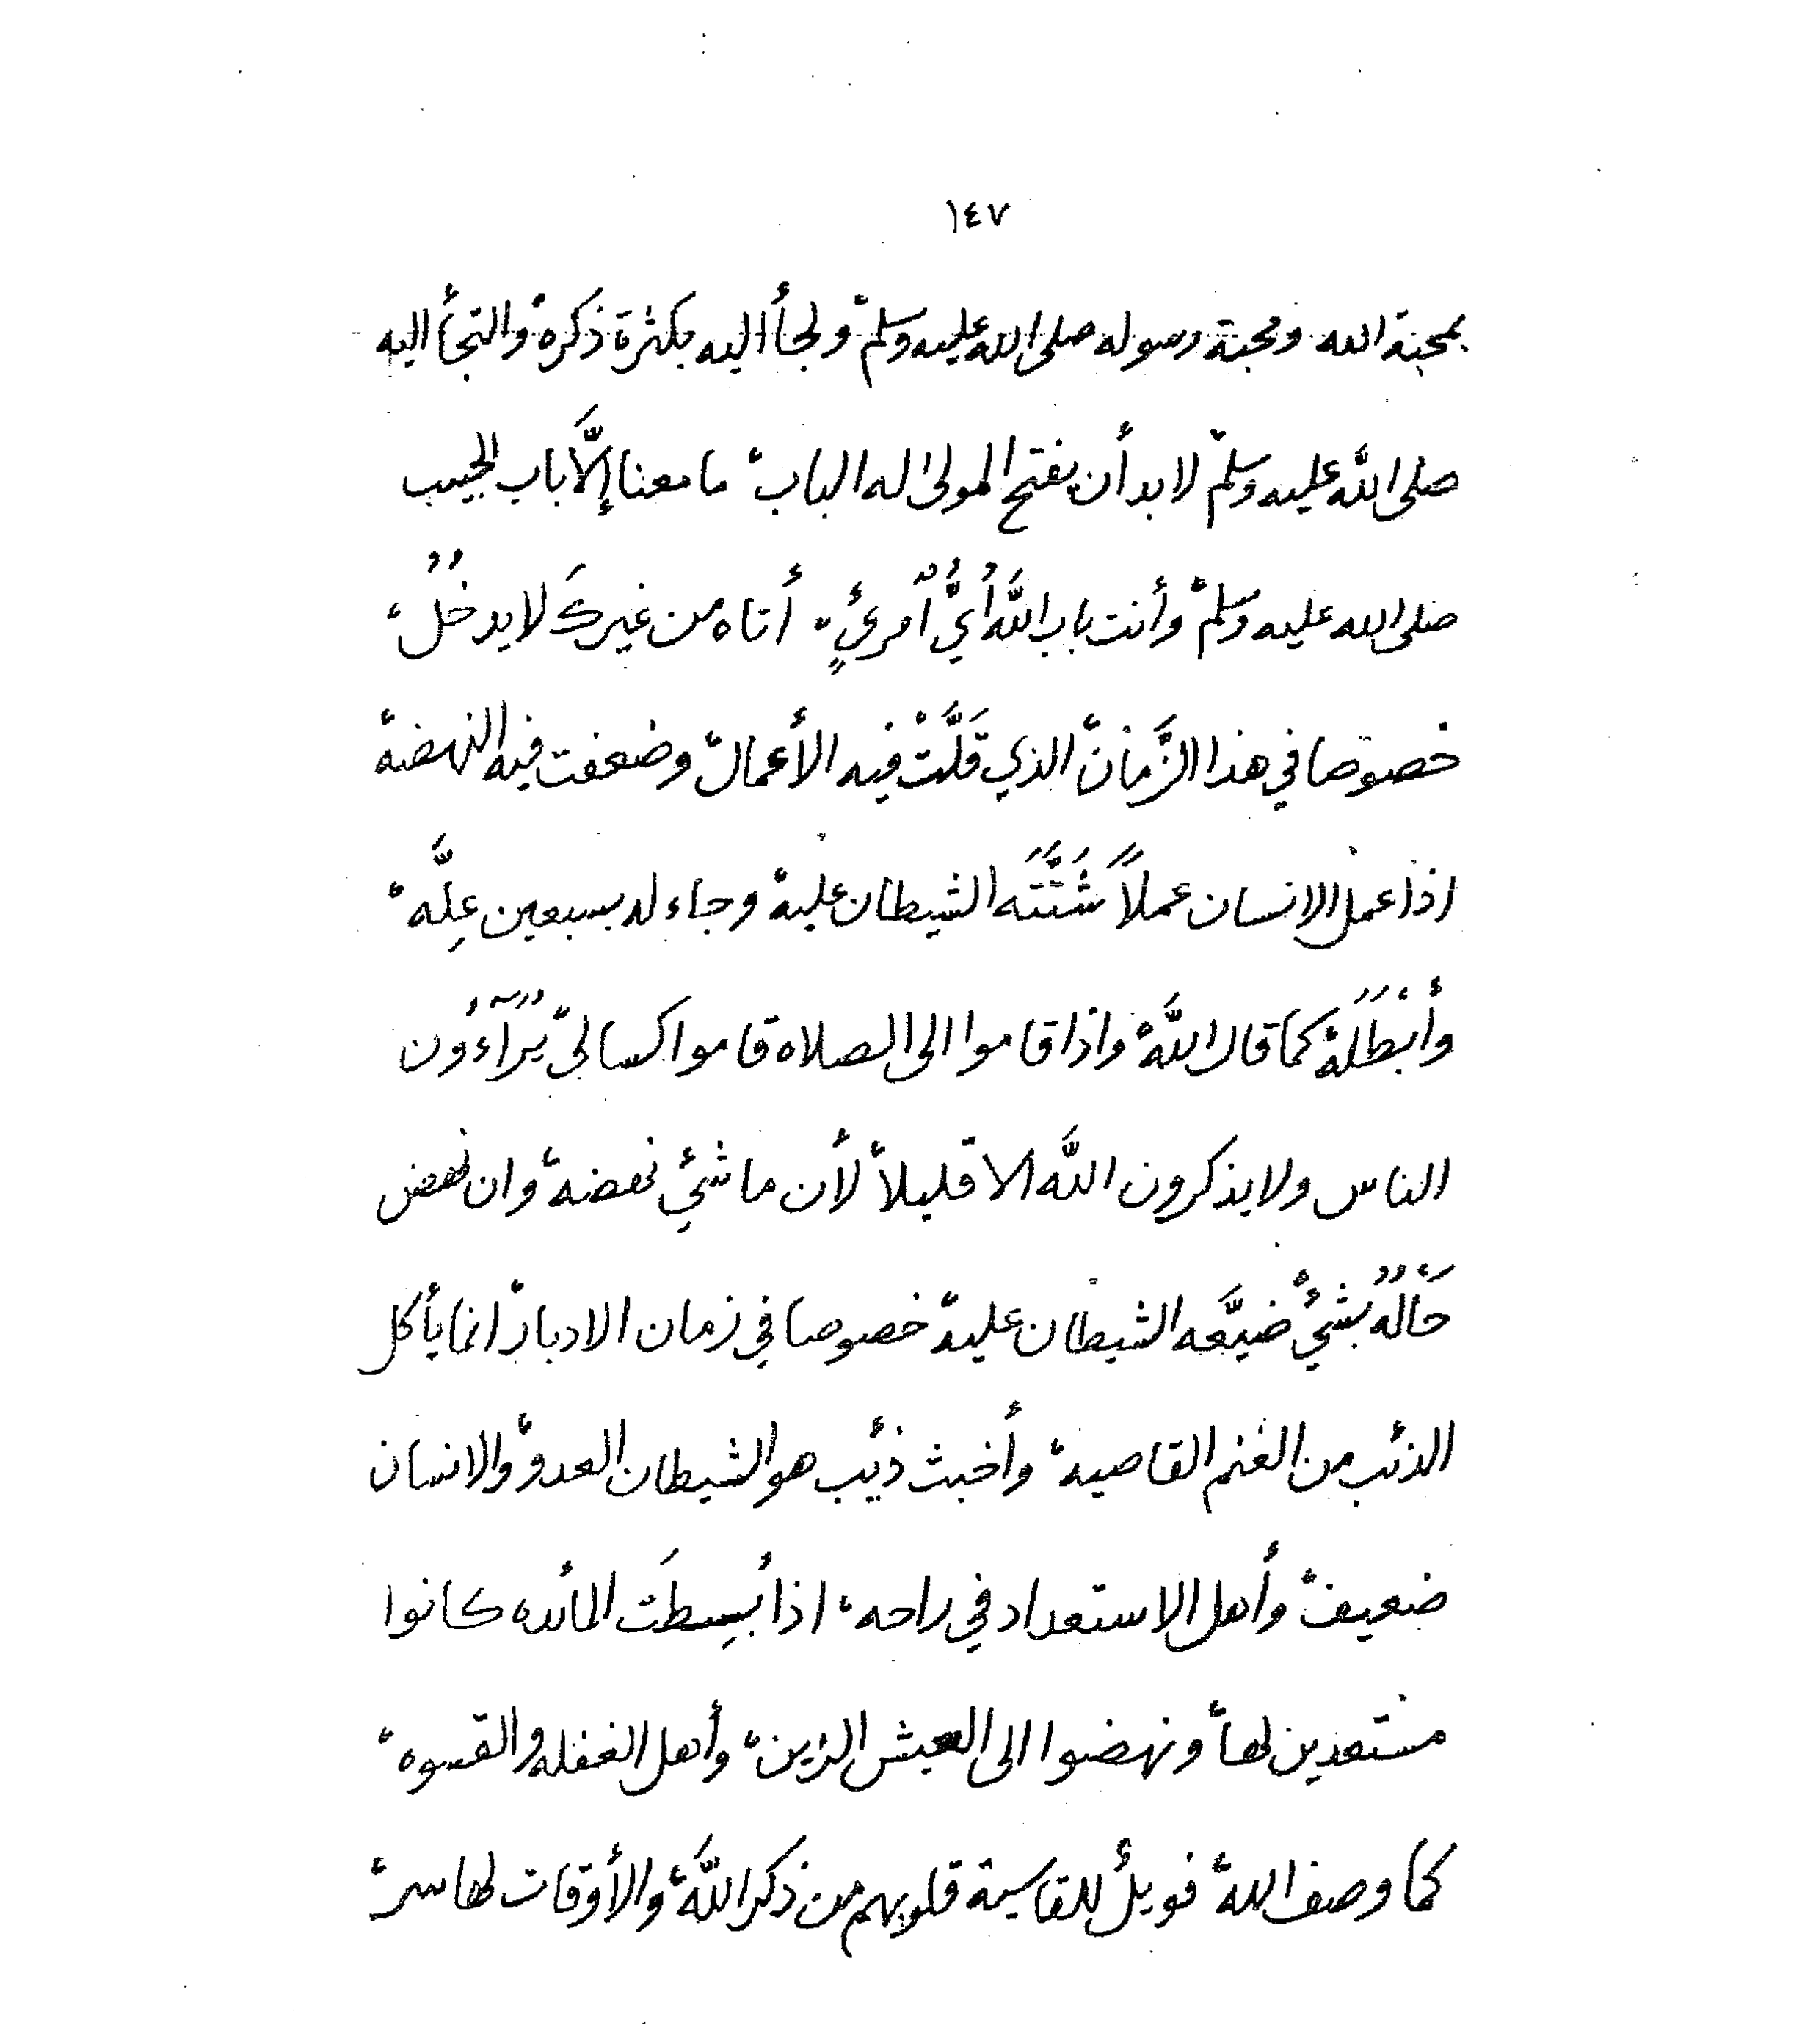 ١٤٧
بمحبة الله ومحبة رسوله صلى الله عليه وسلم، ولجأ اليه بكثرة ذكره، والتجأ اليه
صلى اللَّه عليه وسلم لا بد أن يفتح المولى له الباب، ما معنا إلَّا باب الحبيب
صلى الله عليه وسلم، وأنت باب اللَّه أيُّ ٱمرئٍ، أتاه من غيركَ لا يدخُلُ،
خصوصا في هذا الزَّمان، الذي قَلَّتْ فيه الأعمال، وضعفت فيه النهضة،
اذا عمل الانسان عملاً شَتَّتَه الشيطان عليه، وجاء له بسبعين عِلَّه،
وأبْطَلَه، كما قال اللَّه، واذا قاموا الى الصلاه قاموا كسالى، يُرَآءُون
الناس ولا يذكرون اللَّه الا قليلاً، لأن ما شيْ نهضه، وان نهض
حَالُهُ بشيْ، ضيَّعه الشيطان عليه، خصوصا في زمان الادبار، انما يأكل
الذئب من الغنم القاصيه، وأخبث ذئب هو الشيطان العدو، والانسان
ضعيف، وأهل الاستعداد في راحه، اذا بُسِطَت المائده كانوا
مستعدين لها، ونهضوا الى العيش الزين، وأهل الغفله والقسوه،
كما وصف الله، فويلٌ للقاسية قلوبهم من ذكر اللَّه، والأوقات لها سر،